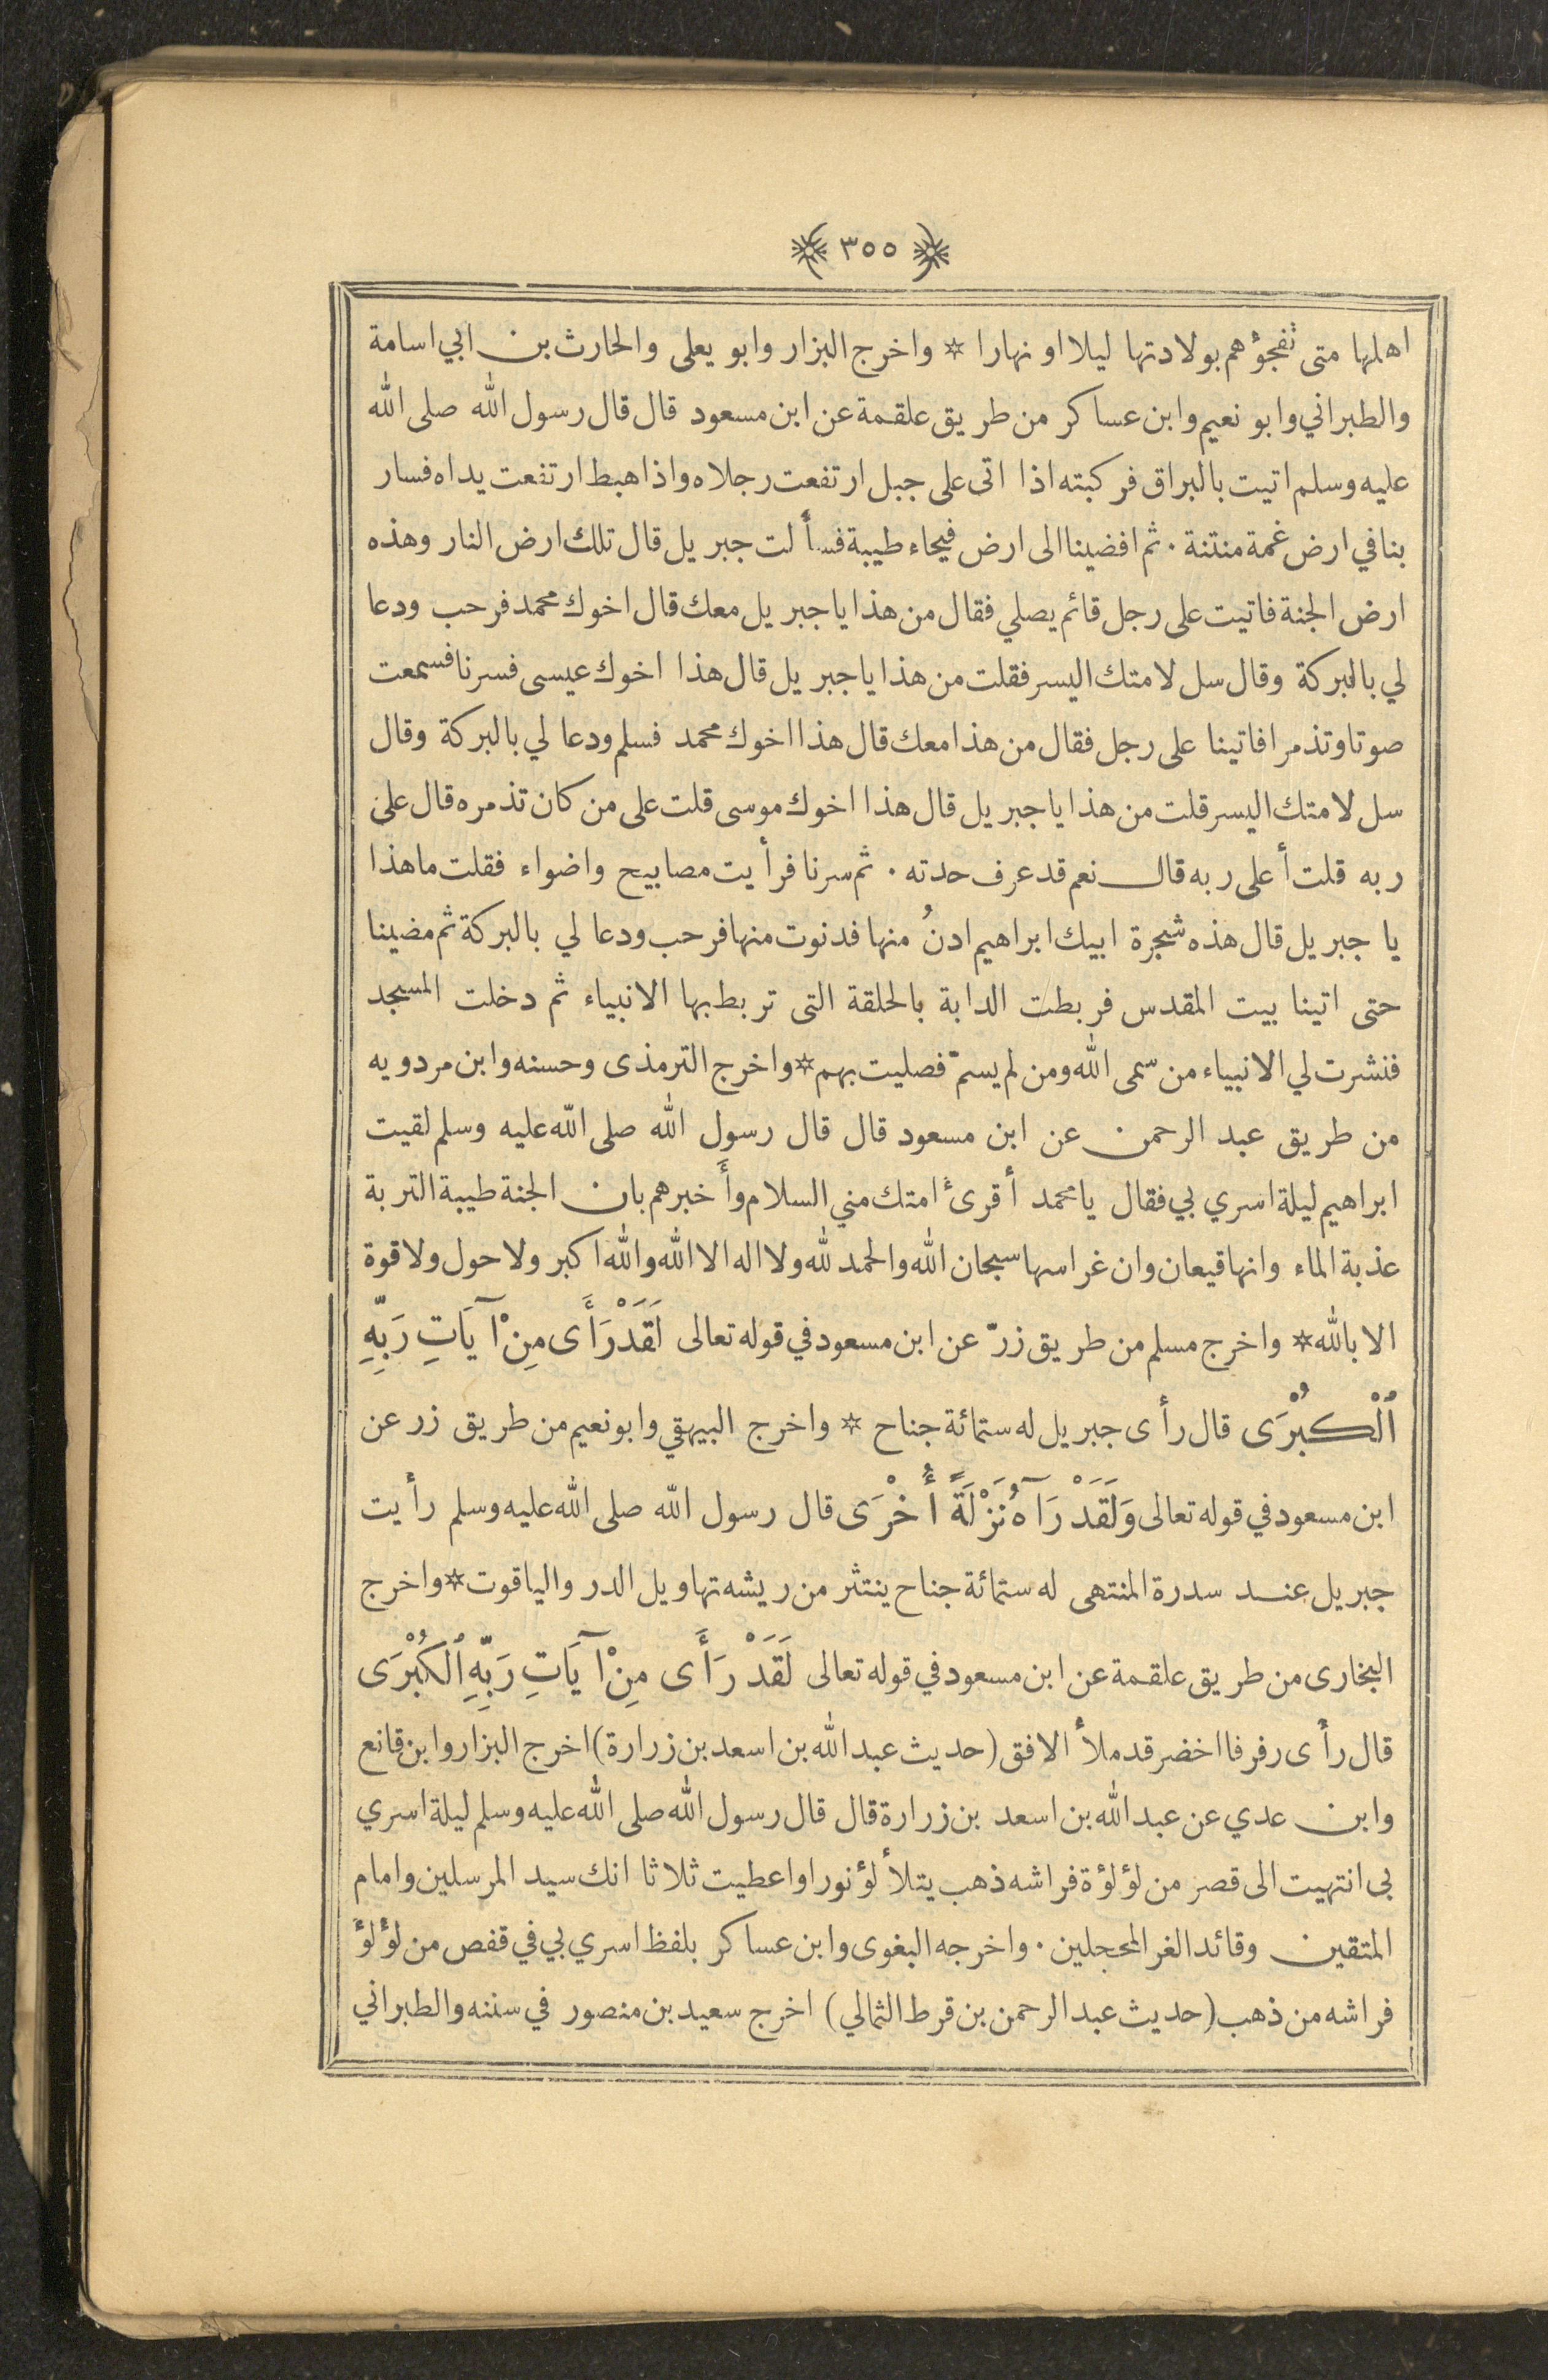 ﴿ ٣٥٥ ﴾
اهلها متى تفجؤهم بولادتها ليلا او نهارا * واخرج البزار وابو يعلى والحارث بن ابي اسامة
والطبراني وابو نعيم وابن عساكر من طريق علقمة عن ابن مسعود قال قال رسول الله صلى الله
عليه وسلم اتيت بالبراق فركبته اذا اتى على جبل ارتفعت رجلاه واذا هبط ارتفعت يداه فسار
بنا في ارض غمة منتنة . ثم افضينا الى ارض فيحاء طيبة فسألت جبريل قال تلك ارض النار وهذه
ارض الجنة فاتيت على رجل قائم يصلي فقال من هذا يا جبريل معك قال اخوك محمد فرحب ودعا
لي بالبركة وقال سل لامتك اليسر فقلت من هذا يا جبريل قال هذا اخوك عيسى فسرنا فسمعت
صوتا وتذمرا فاتينا على رجل فقال من هذا معك قال هذا اخوك محمد فسلم ودعا لي بالبركة وقال
سل لامتك اليسر قلت من هذا يا جبريل قال هذا اخوك موسى قلت على من كان تذمره قال على
ربه قلت أعلى ربه قال نعم قد عرف حدته . ثم سرنا فرأيت مصابيح واضواء فقلت ما هذا
يا جبريل قال هذه شجرة ابيك ابراهيم ادنُ منها فدنوت منها فرحب ودعا لي بالبركة ثم مضينا
حتى اتينا بيت المقدس فربطت الدابة بالحلقة التى تربط بها الانبياء ثم دخلت المسجد
فنشرت لي الانبياء من سمى الله ومن لم يسمّ فصليت بهم * واخرج الترمذى وحسنه وابن مردويه
من طريق عبد الرحمن عن ابن مسعود قال قال رسول الله صلى الله عليه وسلم لقيت
ابراهيم ليلة اسري بي فقال يا محمد أقرئ امتك مني السلام وأَخبرهم بان الجنة طيبة التربة
عذبة الماء وانها قيعان وان غراسها سبحان الله والحمد لله ولا اله الا الله والله اكبر ولا حول ولا قوة
الا بالله * واخرج مسلم من طريق زرّ عن ابن مسعود في قوله تعالى لَقَدْ رَأَى مِنْ آيَاتِ رَبِّهِ
ٱلْكُبْرَى قال رأى جبريل له ستمائة جناح * واخرج البيهقي وابو نعيم من طريق زر عن
ابن مسعود في قوله تعالى وَلَقَدْ رَآهُ نَزْلَةً أُخْرَى قال رسول الله صلى الله عليه وسلم رأيت
جبريل عند سدرة المنتهى له ستمائة جناح ينتثر من ريشه تهاويل الدر والياقوت * واخرج
البخارى من طريق علقمة عن ابن مسعود في قوله تعالى لَقَدْ رَأَى مِنْ آيَاتِ رَبِّهِ ٱلْكُبْرَى
قال رأى رفرفا اخضر قد ملأ الافق (حديث عبد الله بن اسعد بن زرارة) اخرج البزار وابن قانع
وابن عدي عن عبد الله بن اسعد بن زرارة قال قال رسول الله صلى الله عليه وسلم ليلة اسري
بى انتهيت الى قصر من لؤلؤة فراشه ذهب يتلألؤ نورا واعطيت ثلاثا انك سيد المرسلين وامام
المتقين وقائد الغر المحجلين . واخرجه البغوى وابن عساكر بلفظ اسري بي في قفص من لؤلؤ
فراشه من ذهب (حديث عبد الرحمن بن قرط الثمالي) اخرج سعيد بن منصور في سننه والطبراني